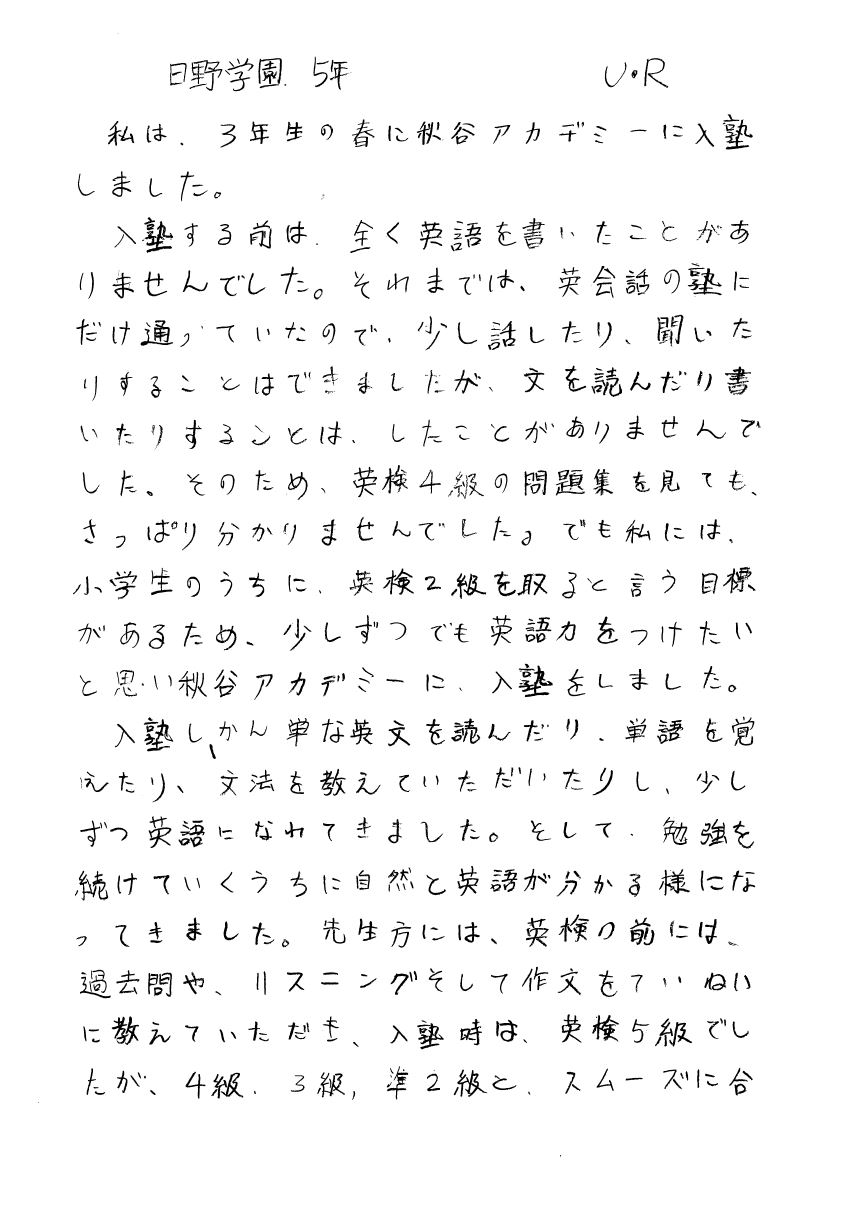 日野学園. 5年 U・R
私は、3年生の春に秋谷アカデミーに入塾
しました。
入塾する前は、全く英語を書いたことがあ
りませんでした。それまでは、英会話の塾に
だけ通っていたので、少し話したり、聞いた
りすることはできましたが、文を読んだり書
いたりすることは、したことがありませんで
した。そのため、英検4級の問題集を見ても、
さっぱり分かりませんでした。でも私には、
小学生のうちに、英検2級を取ると言う目標
があるため、少しずつでも英語力をつけたい
と思い秋谷アカデミーに、入塾をしました。
入塾し、かん単な英文を読んだり、単語を覚
えたり、文法を教えていただいたりし、少し
ずつ英語になれてきました。そして、勉強を
続けていくうちに自然と英語が分かる様にな
ってきました。先生方には、英検の前には、
過去問や、リスニングそして作文をていねい
に教えていただき、入塾時は、英検5級でし
たが、4級、3級、準2級と、スムーズに合